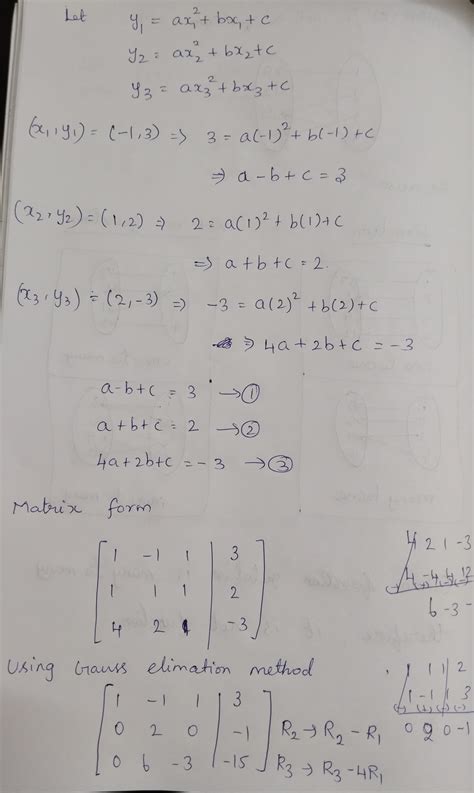 Let y₁ = ax₁² + bx₁ + c
y₂ = ax₂² + bx₂ + c
y₃ = ax₃² + bx₃ + c
(x₁, y₁) = (-1, 3) ⇒ 3 = a(-1)² + b(-1) + c
⇒ a - b + c = 3
(x₂, y₂) = (1, 2) ⇒ 2 = a(1)² + b(1) + c
⇒ a + b + c = 2.
(x₃, y₃) = (2, -3) ⇒ -3 = a(2)² + b(2) + c
⇒ 4a + 2b + c = -3
a - b + c = 3 → ①
a + b + c = 2 → ②
4a + 2b + c = -3 → ③
Matrix form
1 -1 1 | 3
1 1 1 | 2
4 2 1 | -3
4 2 1 -3
4 -4 4 12
6 -3 -
Using Gauss elimation method
1 -1 1 | 3
0 2 0 | -1 R₂ → R₂ - R₁
0 6 -3 | -15 R₃ → R₃ - 4R₁
1 1 1 | 2
1 -1 1 | 3
0 2 0 -1